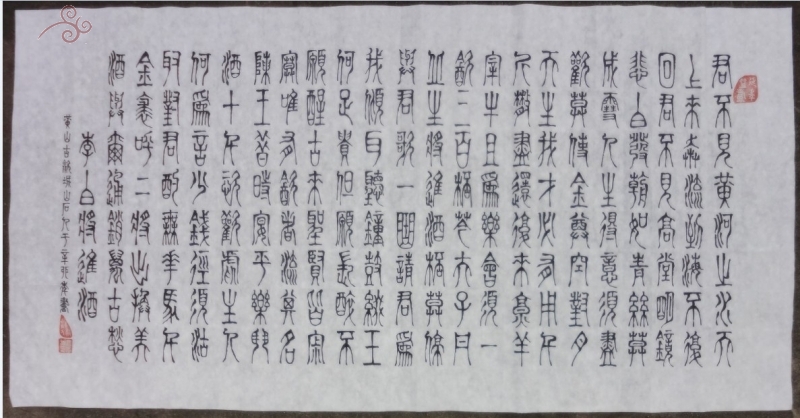 君不見黃河之水天
上來奔流到海不復
回君不見高堂明鏡
悲白髮朝如青絲莫
成雪人生得意須盡
歡莫使金尊空對月
天生我才必有用千
金散盡還復來烹羊
宰牛且爲樂會須一
飲三百杯岑夫子丹
丘生將進酒杯莫停
與君歌一曲請君爲
我傾耳聽鐘鼓饌玉
何足貴但願長醉不
願醒古來聖賢皆寂
寞唯有飲者留其名
陳王昔時宴平樂斗
酒十千恣歡謔主人
何爲言少錢徑須沽
取對君酌五花馬千
金裘呼兒將出換美
酒與爾同銷萬古愁
李白將進酒